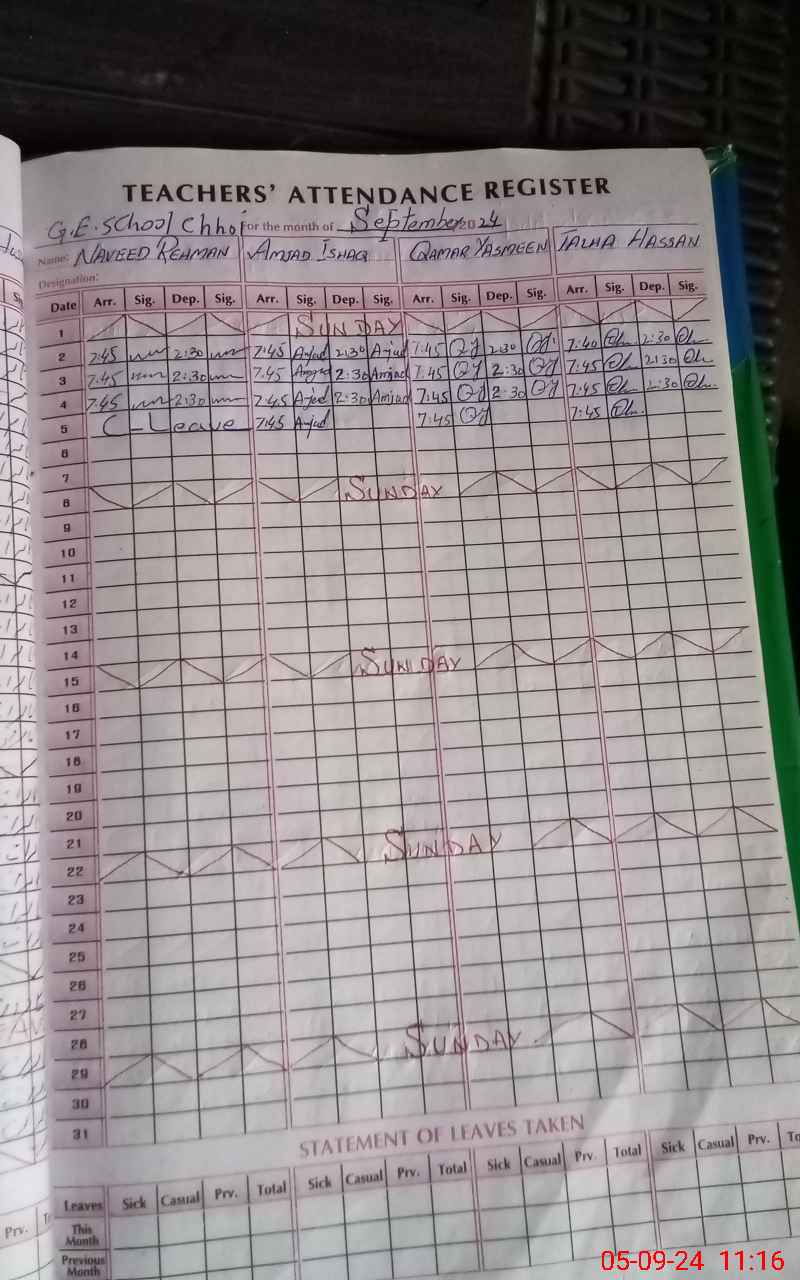 TEACHERS' ATTENDANCE REGISTER
G.E. School Chhoi for the month of September 2024
Name: NAVEED REHMAN AMJAD ISHAQ QAMAR YASMEEN TALHA HASSAN
Designation:
Date Arr. Sig. Dep. Sig. Arr. Sig. Dep. Sig. Arr. Sig. Dep. Sig. Arr. Sig. Dep. Sig.
1 SUNDAY
2 7:45 2:30 7:45 Amjad 2:30 Amjad 7:45 QY 2:30 QY 7:40 2:30
3 7:45 2:30 7:45 Amjad 2:30 Amjad 7:45 QY 2:30 QY 7:45 2:30
4 7:45 2:30 7:45 Amjad 2:30 Amjad 7:45 QY 2:30 QY 7:45 2:30
5 C-Leave 7:45 Amjad 7:45 QY 7:45
6
7
8 SUNDAY
9
10
11
12
13
14
15 SUNDAY
16
17
18
19
20
21
22 SUNDAY
23
24
25
26
27
28
29 SUNDAY
30
31
STATEMENT OF LEAVES TAKEN
Leaves Sick Casual Prv. Total Sick Casual Prv. Total Sick Casual Prv. Total Sick Casual Prv. To
This Month
Previous Month
Prv.
05-09-24 11:16